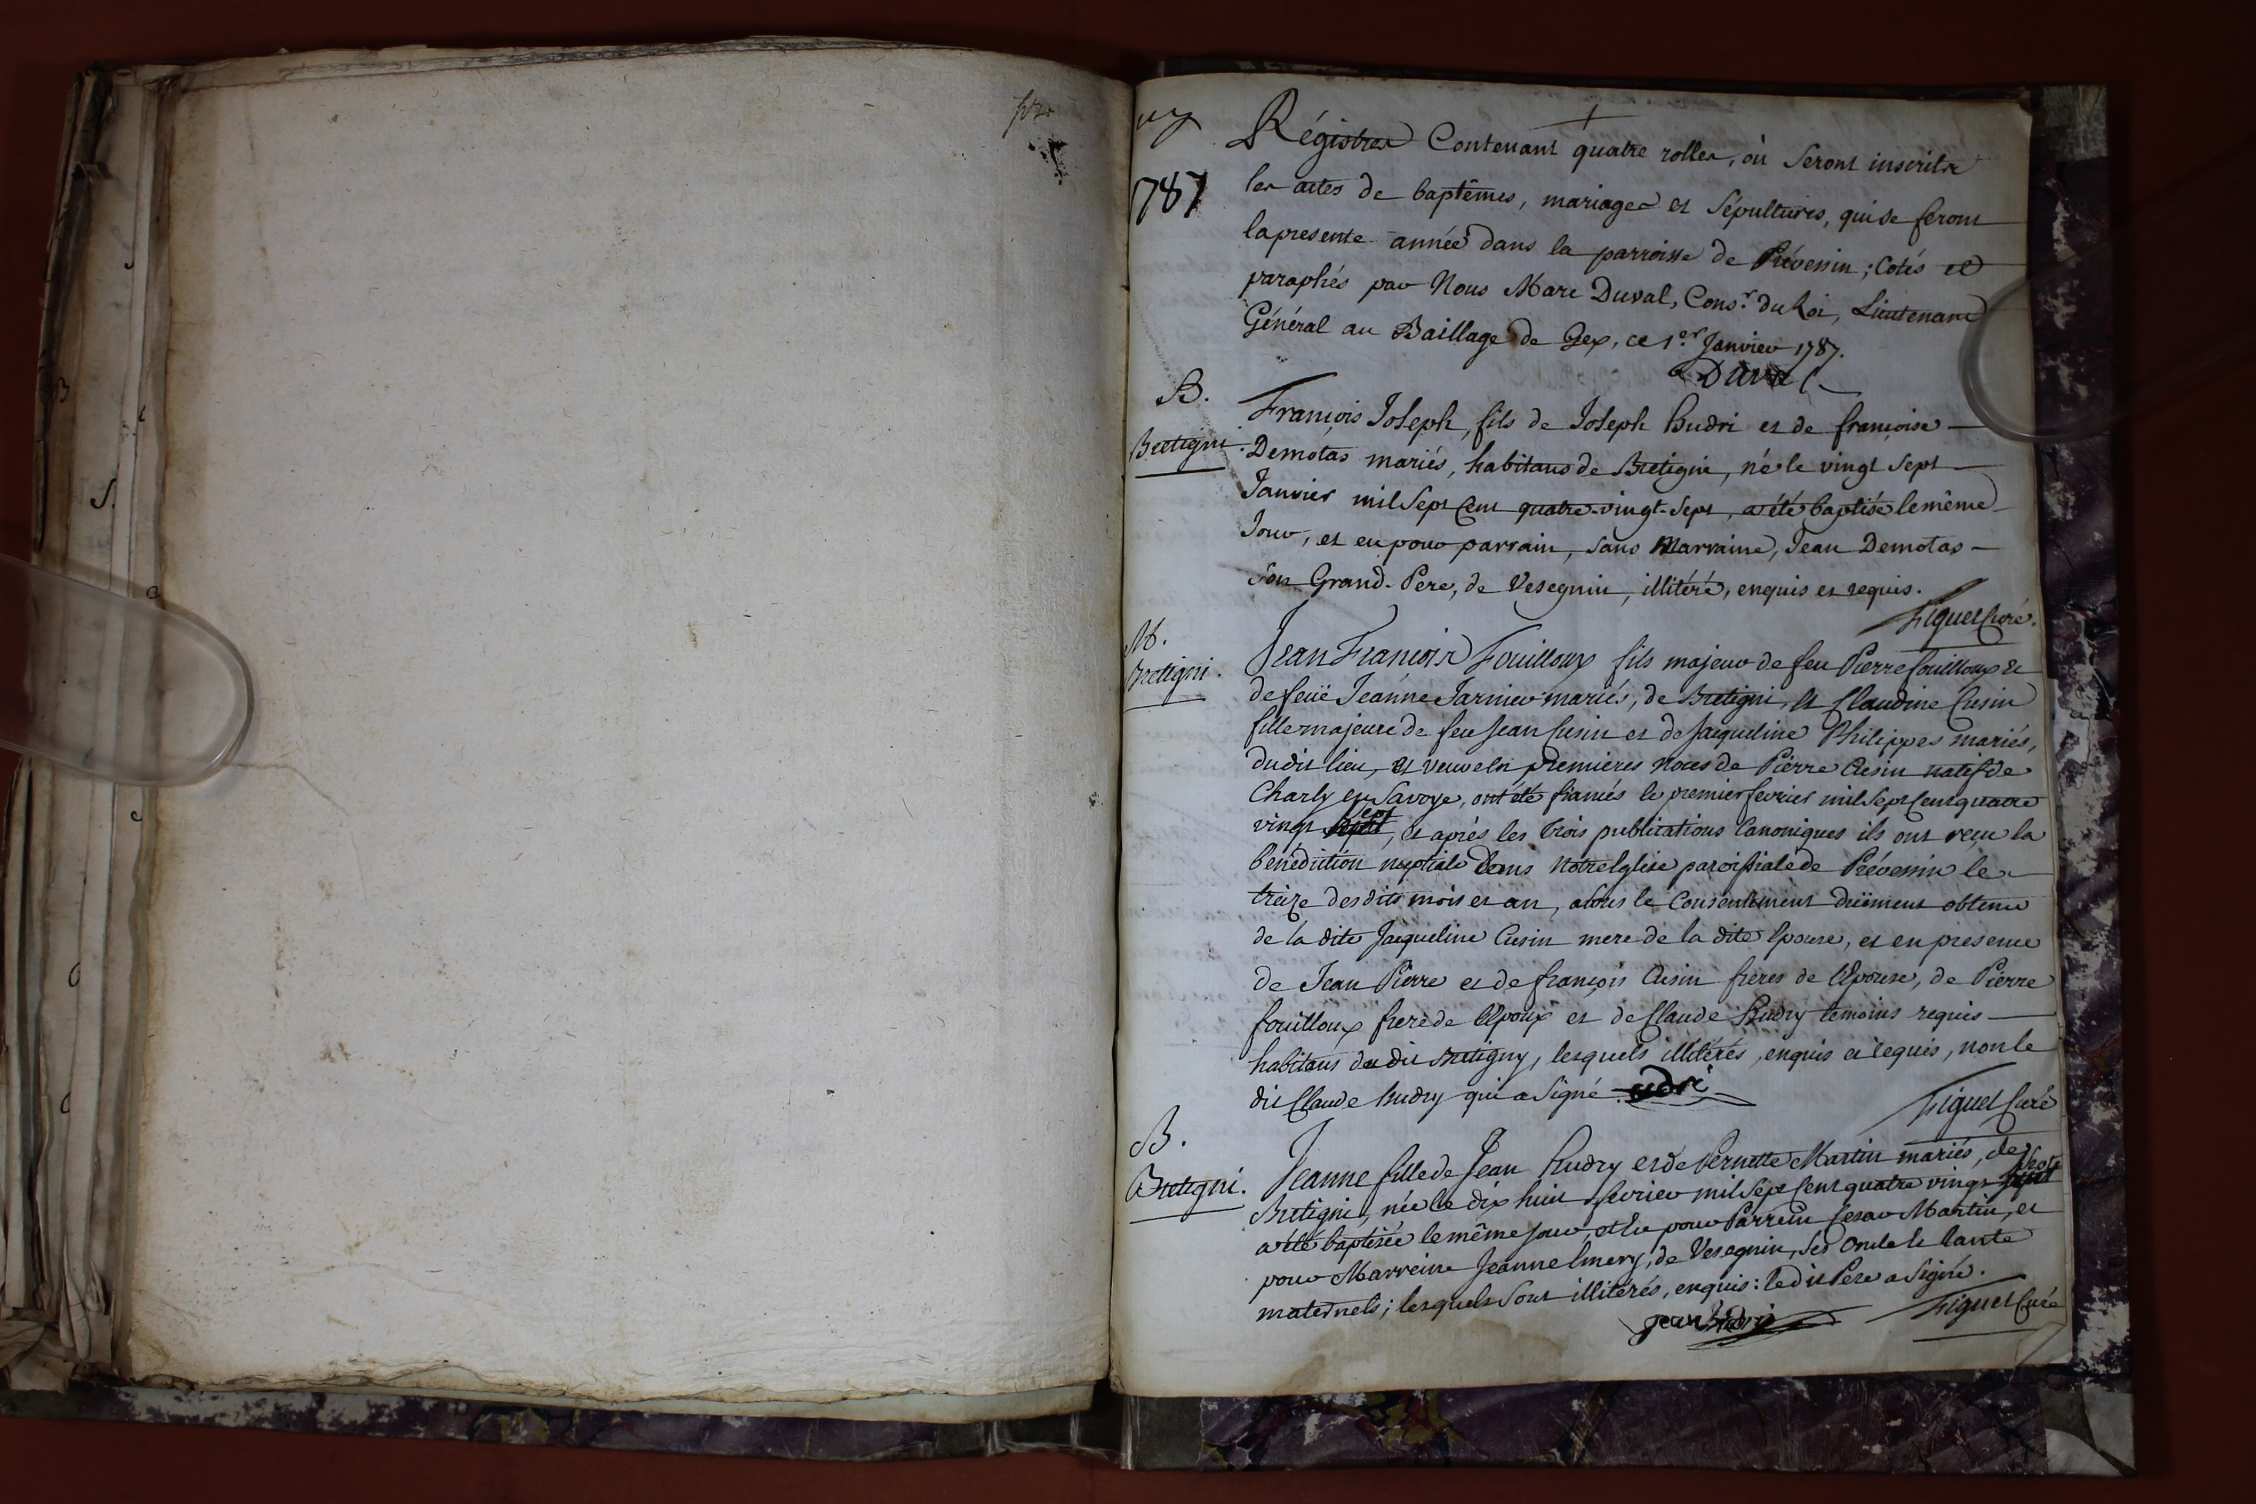 1787
Régistre Contenant quatre rolles, où Seront inscrits
les actes de baptêmes, mariages et Sépultures, qui se feront
la presente année dans la parroisse de Prévessin; Cotés et
paraphés par Nous Marc Duval, Cons.r du Roi, Lieutenant
Général au Baillage de Gex, ce 1.er Janvier 1787.
Duval
B.
Bretigni.
François Joseph, fils de Joseph Budri et de françoise
Demotas mariés, habitans de Bretigni, né le vingt Sept
Janvier mil Sept Cent quatre-vingt-Sept, a été baptisé le même
Jour, et eu pour parrain, sans Marraine, Jean Demotas
son Grand-Pere, de Vesegnin, illitéré, enquis et requis.
Figuet Curé.
M.
Bretigni.
Jean François Fouilloux fils majeur de feu Pierre fouilloux et
de feüe Jeanne Jarnier mariés, de Bretigni, et Claudine Cusin
fille majeure de feu Jean Cusin et de Jaqueline Philippes mariés,
dudit lieu, et veuve en premieres noces de Pierre Cusin natif de
Charly en Savoye, ont été fiancés le premier fevrier mil Sept Cent quatre
vingt sept, et aprés les trois publications Canoniques ils ont reçu la
bénédiction nuptiale dans notre Eglise paroissiale de Prévessin le
treize desdits mois et an, sous le Consentement düement obtenu
de la dite Jaqueline Cusin mere de la dite Epouse, et en presence
de Jean Pierre et de françois Cusin freres de l'Epouse, de Pierre
fouilloux frere de l'Epoux et de Claude Budry temoins requis
habitans du dit Bretigny, lesquels illitérés, enquis et requis, non le
dit Claude Budry qui a Signé. udri
Figuet Curé
B.
Bretigni.
Jeanne fille de Jean Budry et de Pernette Martin mariés, de
Bretigni, née le dix huit fevrier mil Sept Cent quatre vingt sept
a été baptisée le même jour, et eu pour Parrein Cesar Martin, et
pour Marreine Jeanne Emery, de Vesegnin, ses oncle et tante
maternels; lesquels sont illitérés, enquis: le dit Pere a Signé.
jean Budri
Figuet Curé